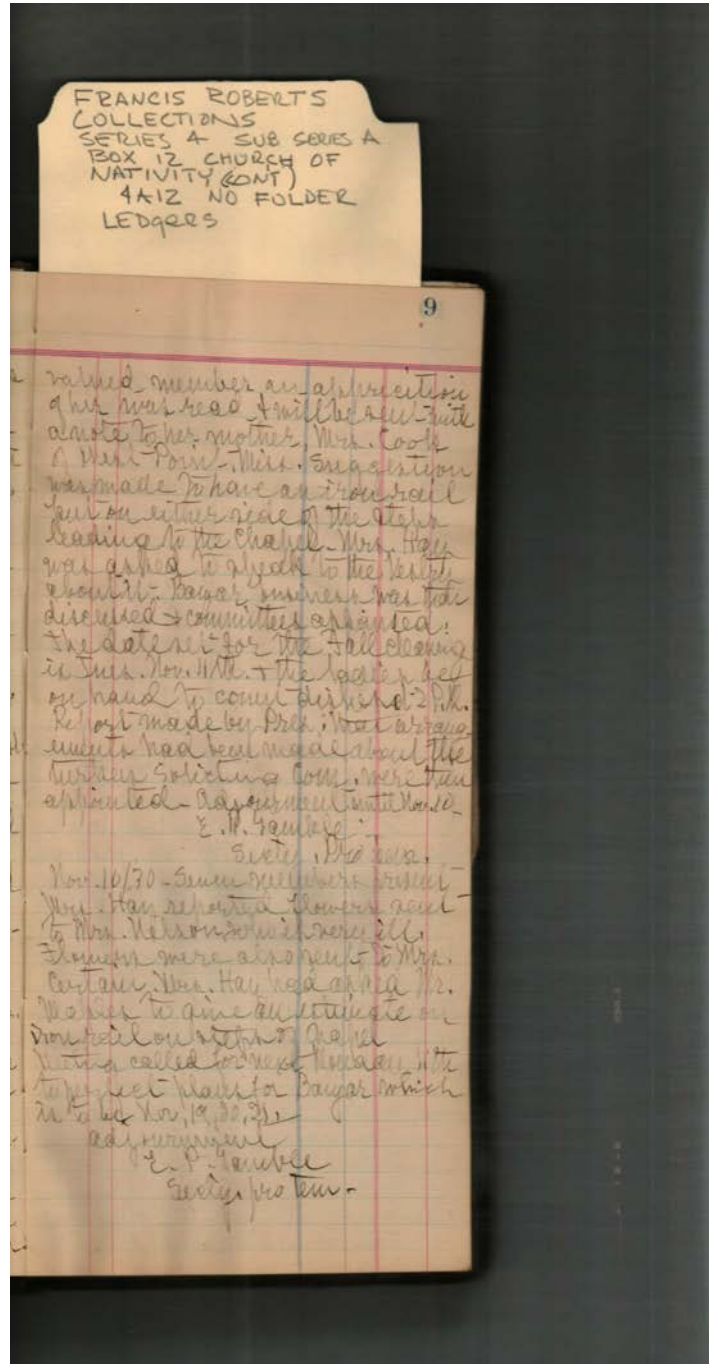 FRANCIS ROBERTS
COLLECTIONS
SERIES 4 SUB SERIES A
BOX 12 CHURCH OF
NATIVITY (CONT)
4A12 NO FOLDER
LEDgERS
9
valued member, an apprecition
of her was read & will be sent with
a note to her mother, Mrs. Cook
of West Point, Miss. Suggestion
was made to have an iron rail
put on either side of the steps
leading to the Chapel. Mrs. Hay
was asked to speak to the Vestry
about it. Bazar business was then
discussed & committees appointed.
The date set for the Fall cleaning
is Tues. Nov. 11th. & the ladies
on hand to 2 P.M.
Report made by Pres. that arrang-
ements had been made about the
turkey Soliciting Com. were then
appointed - Adjournment until Nov. 10-
E. P. Gamble
Secty. Pro tem.
Nov. 10/30 - Seven members present
Mrs. Hay reported flowers sent
to Mrs. Nelson, who is very ill.
Flowers were also sent to Mrs.
Certain. Mrs. Hay had asked Mr.
to give an estimate on
iron rail on steps of Chapel
Meeting called for next Monday
to perfect plans for Bazar which
is to be Nov. 19, 20, 21.
adjournment
E. P. Gamble
Secty. pro tem-